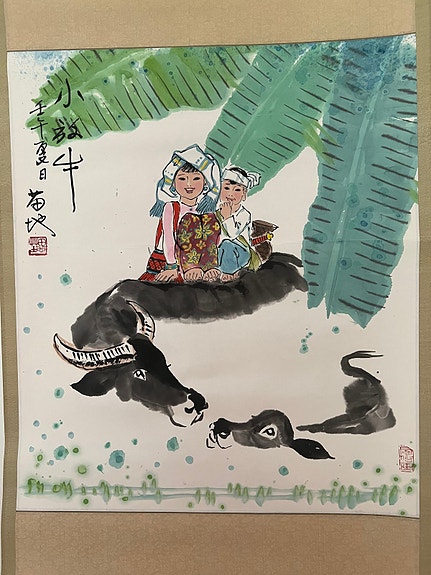 小放牛
壬午夏日
苗地